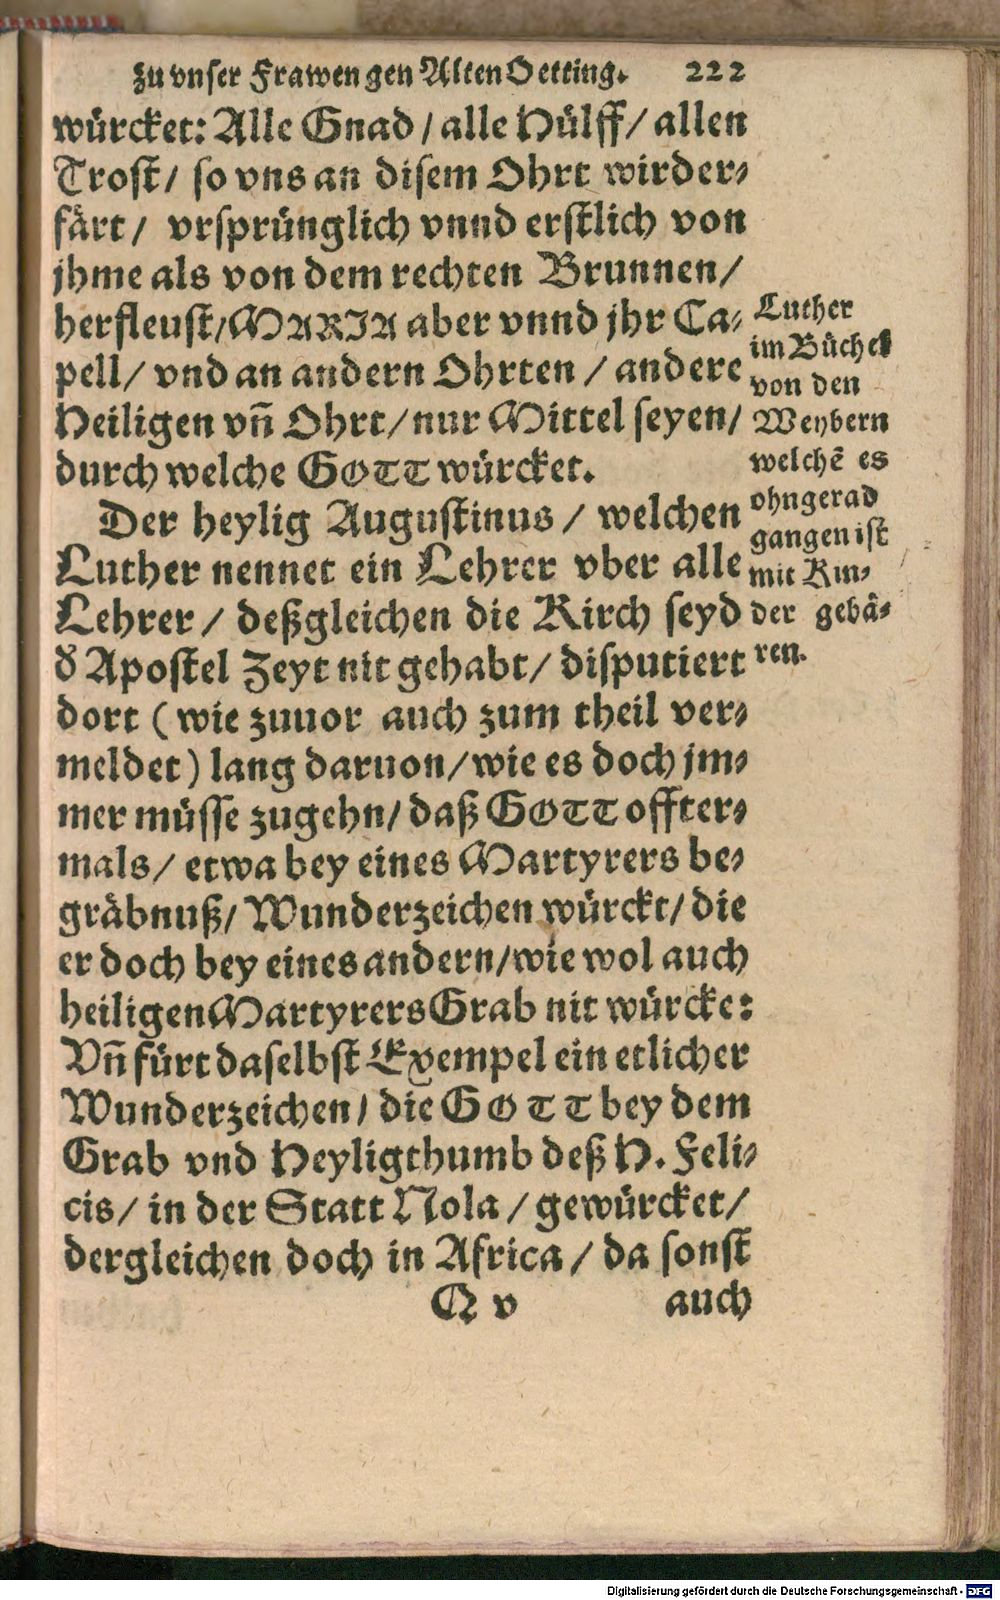 zu vnser Frawen gen Alten Oetting. 222
würcket: Alle Gnad / alle Hülff / allen
Trost / so vns an disem Ohrt wirder⸗
färt / vrsprünglich vnnd erstlich von
jhme als von dem rechten Brunnen /
herfleust / MARIA aber vnnd jhr Ca⸗
pell / vnd an andern Ohrten / andere
Heiligen vñ Ohrt / nur Mittel seyen /
durch welche GOTT würcket.
Der heylig Augustinus / welchen
Luther nennet ein Lehrer vber alle
Lehrer / deßgleichen die Kirch seyd
d̕ Apostel Zeyt nit gehabt / disputiert
dort (wie zuuor auch zum theil ver⸗
meldet) lang daruon / wie es doch jm⸗
mer müsse zugehn / daß GOTT offter⸗
mals / etwa bey eines Martyrers be⸗
gräbnuß / Wunderzeichen würckt / die
er doch bey eines andern / wie wol auch
heiligen Martyrers Grab nit würcke:
Vñ fürt daselbst Exempel ein etlicher
Wunderzeichen / die GOTT bey dem
Grab vnd Heyligthumb deß H. Feli⸗
cis / in der Statt Nola / gewürcket /
dergleichen doch in Africa / da sonst
Q v auch
Luther
im Büchel
von den
Weybern
welchē es
ohngerad
gangen ist
mit Kin⸗
der gebä⸗
ren.
Digitalisierung gefördert durch die Deutsche Forschungsgemeinschaft - DFG